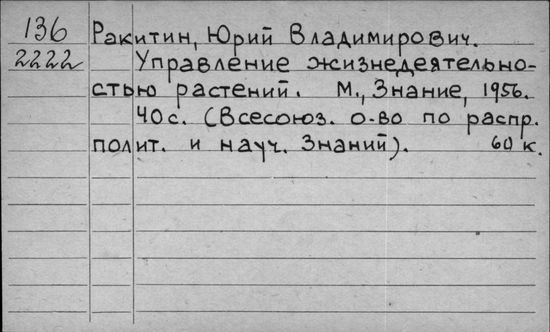 136 Ракитин, Юрий Владимирович.
2222 Управление жизнедеятельно-
стью растений. М., Знание, 1956.
40 с. (Всесоюз. о-во по распр.
полит. и науч. Знаний). 60 к.